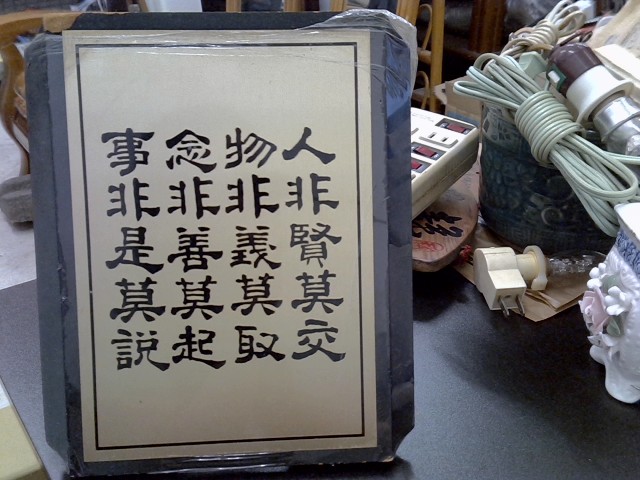 人非賢莫交
物非義莫取
念非善莫起
事非是莫說